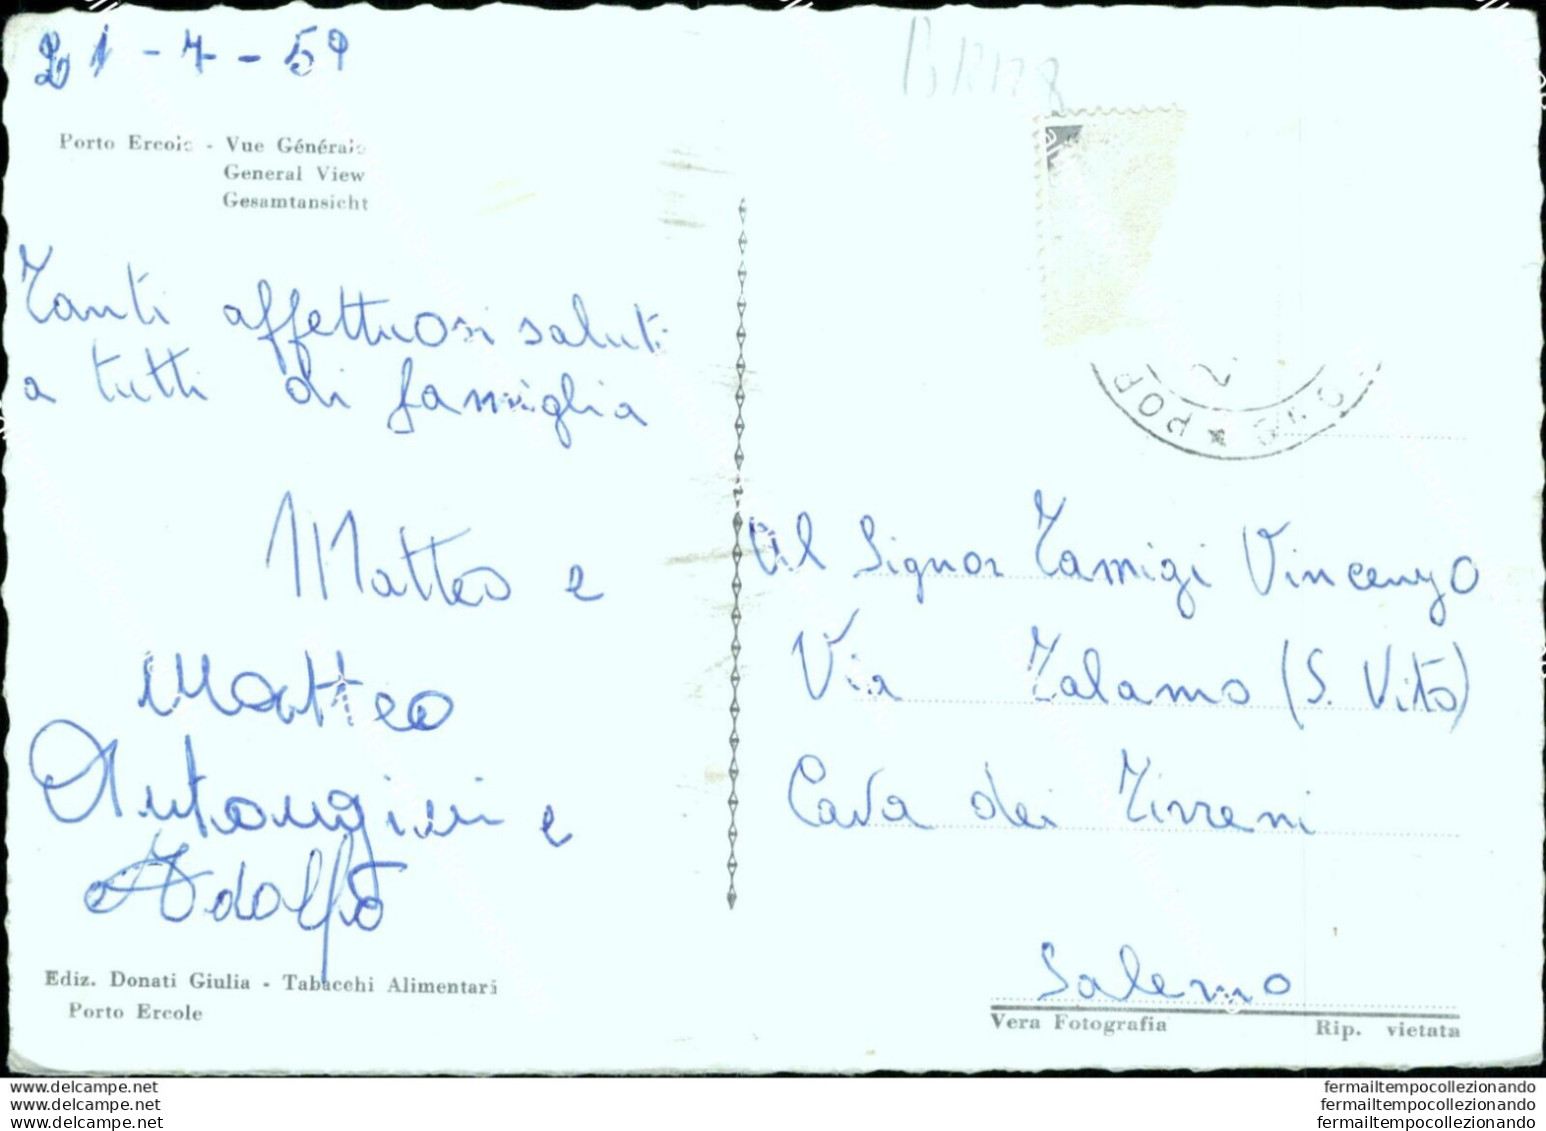 21-7-59
Porto Ercole - Vue Générale
General View
Gesamtansicht
Tanti affettuosi saluti
a tutti di famiglia
Matteo e
Matteo
Antongini e
Adolfo
Ediz. Donati Giulia - Tabacchi Alimentari
Porto Ercole
POP
Al Signor Tamigi Vincenzo
Via Talamo (S. Vito)
Cava dei Tirreni
Salerno
Vera Fotografia Rip. vietata
www.delcampe.net
www.delcampe.net
www.delcampe.net
fermailtempocollezionando
fermailtempocollezionando
fermailtempocollezionando